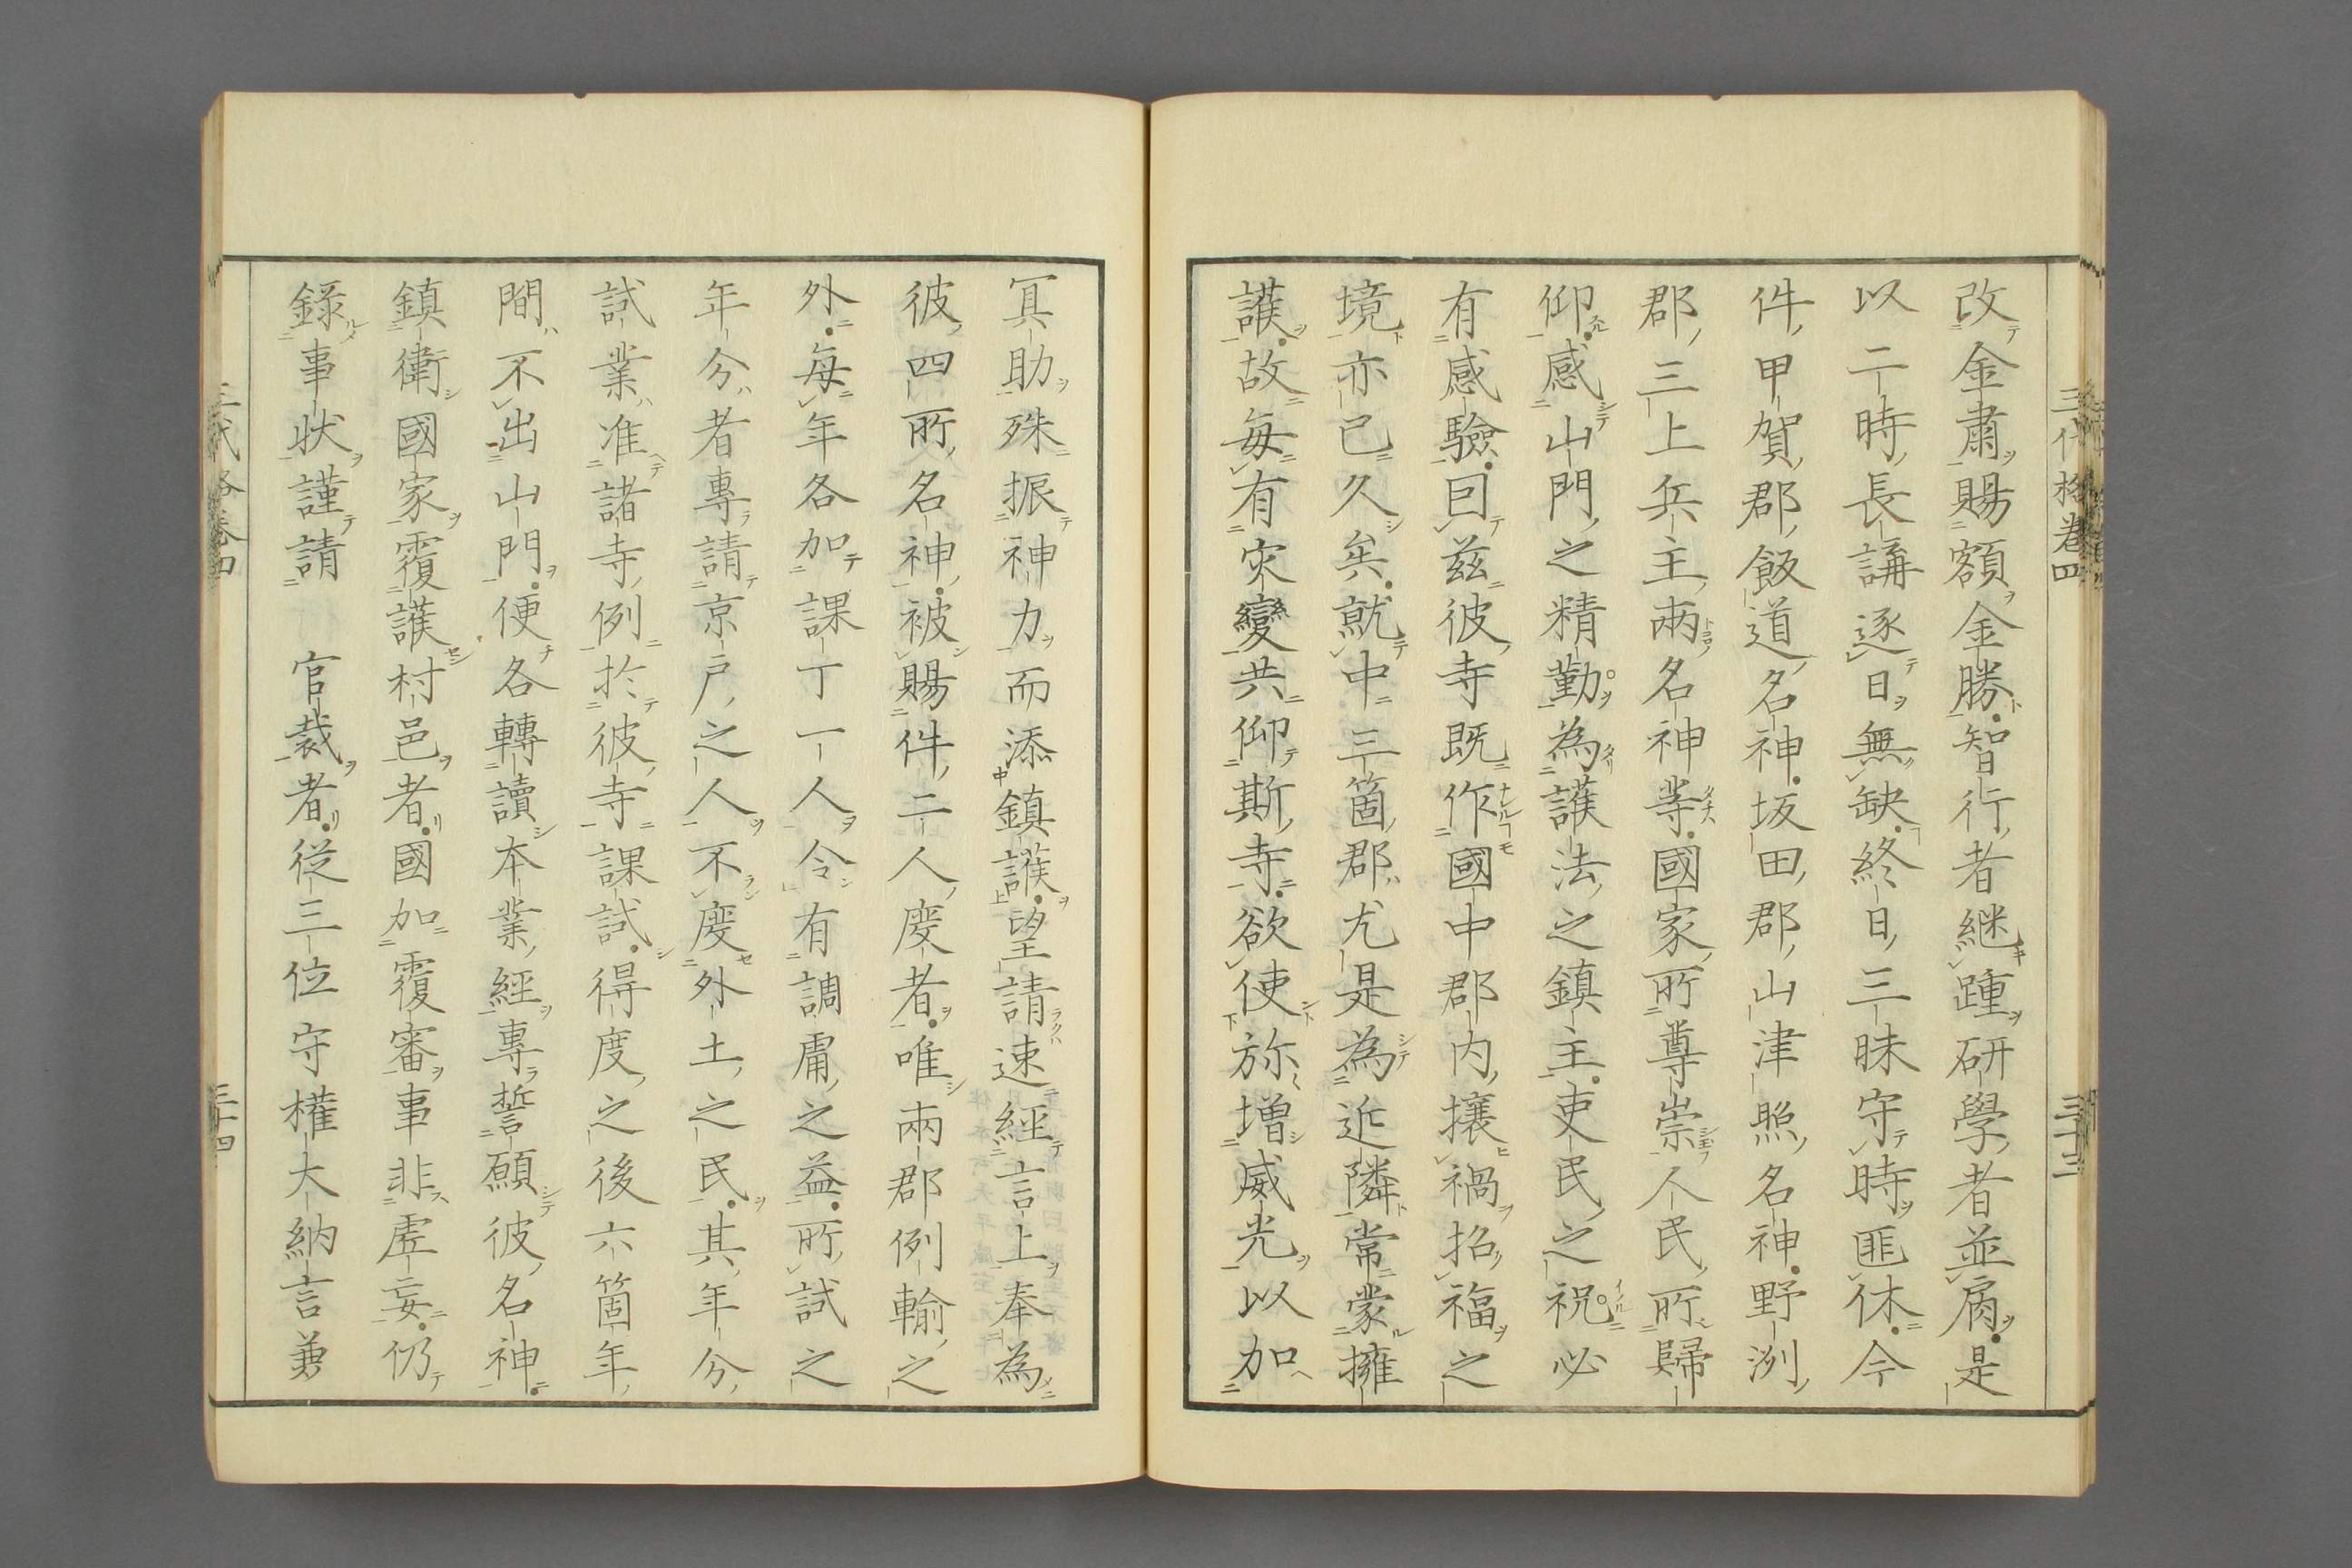 三代格卷四
三十三
改金肅賜額金勝智行者継踵研學者並肩是
以二時長講逐日無缺終日三昧守時匪休今
件甲賀郡飯道名神坂田郡山津照名神野洲
郡三上兵主兩名神等國家所尊崇人民所歸
仰感山門之精勤為護法之鎮主吏民之祝必
有感驗囙茲彼寺既作國中郡内攘禍招福之
境亦已久矣就中三箇郡尤是為近隣常蒙擁
護故每有灾變共仰斯寺欲使弥增威光以加
冥助殊振神力而添鎮護望請速經言上奉為
彼四所名神被賜件二人度者唯兩郡例輸之
外每年各加課丁一人令有調庸之益所試之
年分者專請京戶之人不度外土之民其年分
試業准諸寺例於彼寺課試得度之後六箇年
間不出山門便各轉讀本業經專誓願彼名神
鎮衛國家覆護村邑者國加覆審事非虛妄仍
錄事狀謹請　官裁者從三位守權大納言兼
三代格卷四
三十四